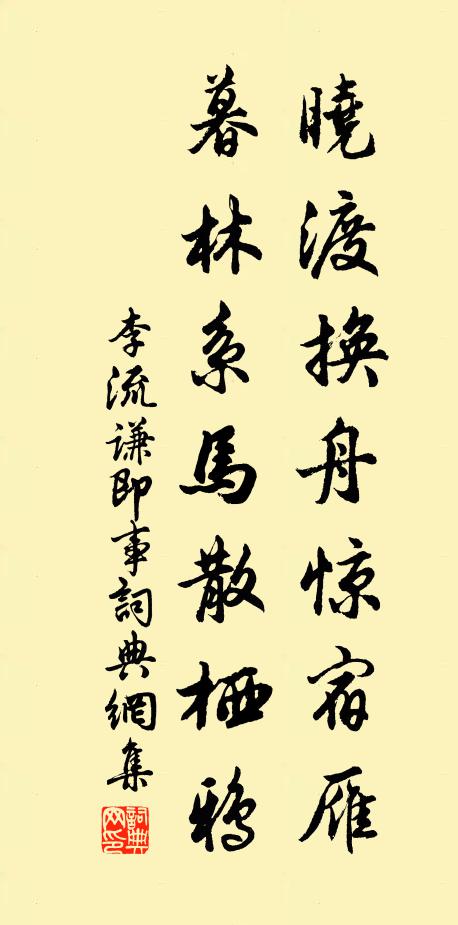 曉渡換舟惊宿雁
暮林系馬散栖鴉
李流谦即事詞典網集
詞典网印